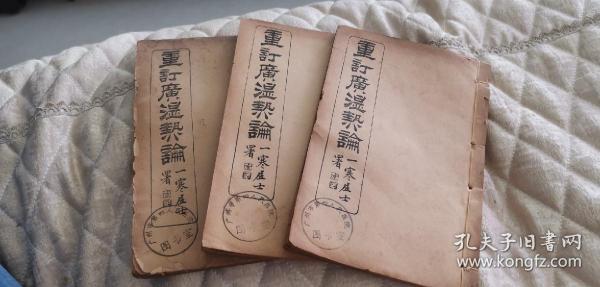 重訂廣温热論
一寒居士
署
重訂廣温热論
一寒居士
署
重訂廣温热論
一寒居士
署
孔夫子旧书网
www.kongfz.com